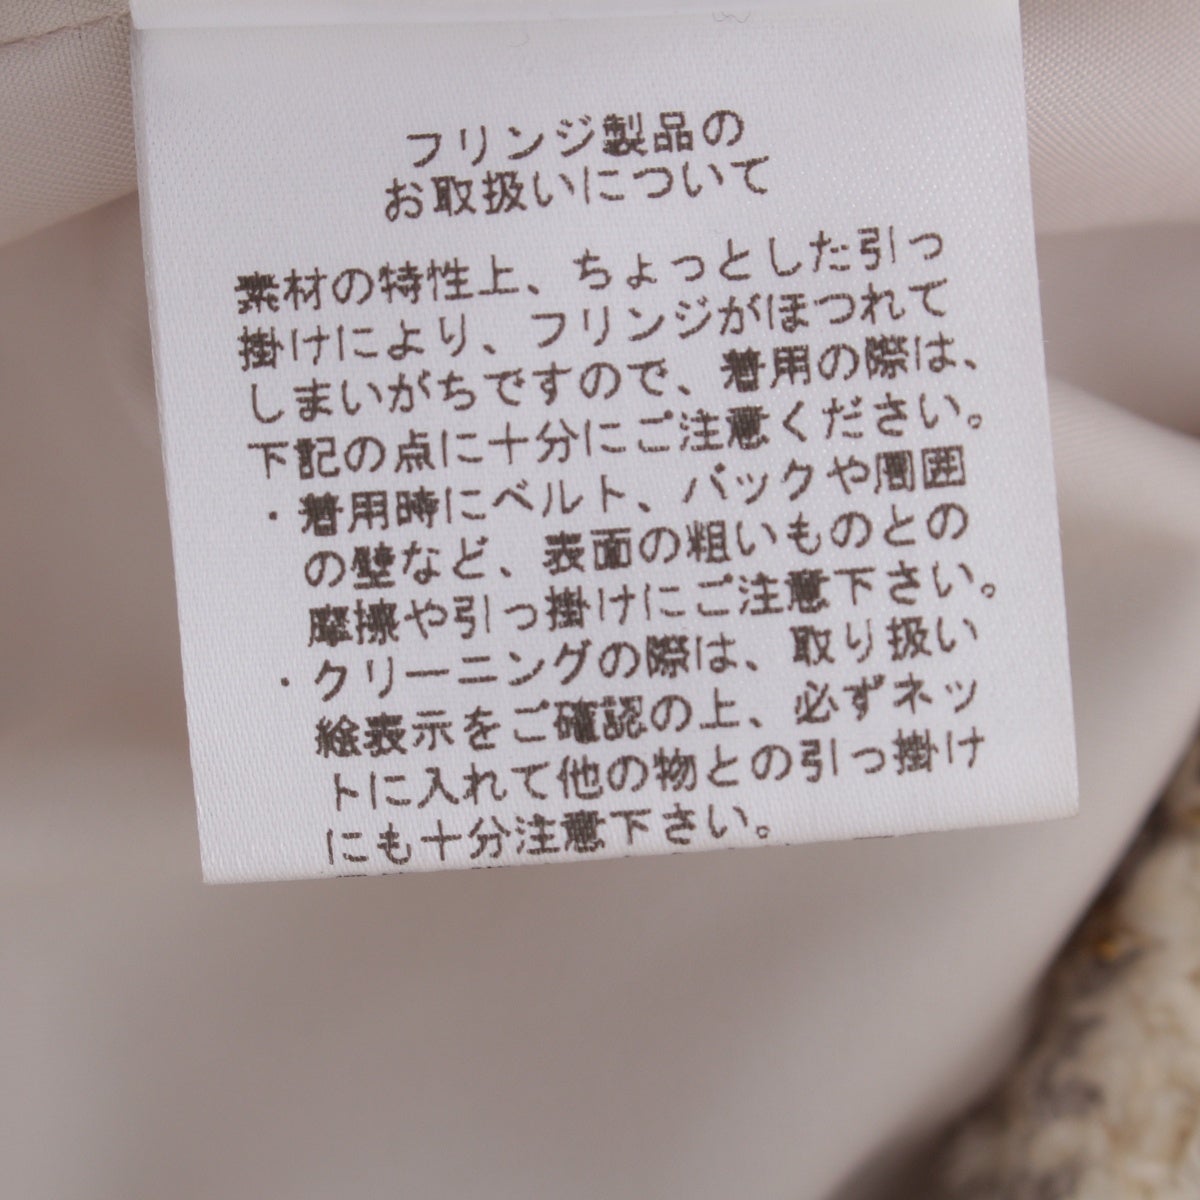 フリンジ製品の
お取扱いについて
素材の特性上、ちょっとした引っ
掛けにより、フリンジがほつれて
しまいがちですので、着用の際は、
下記の点に十分にご注意ください。
・着用時にベルト、バックや周囲
の壁など、表面の粗いものとの
摩擦や引っ掛けにご注意下さい。
・クリーニングの際は、取り扱い
絵表示をご確認の上、必ずネッ
トに入れて他の物との引っ掛け
にも十分注意下さい。